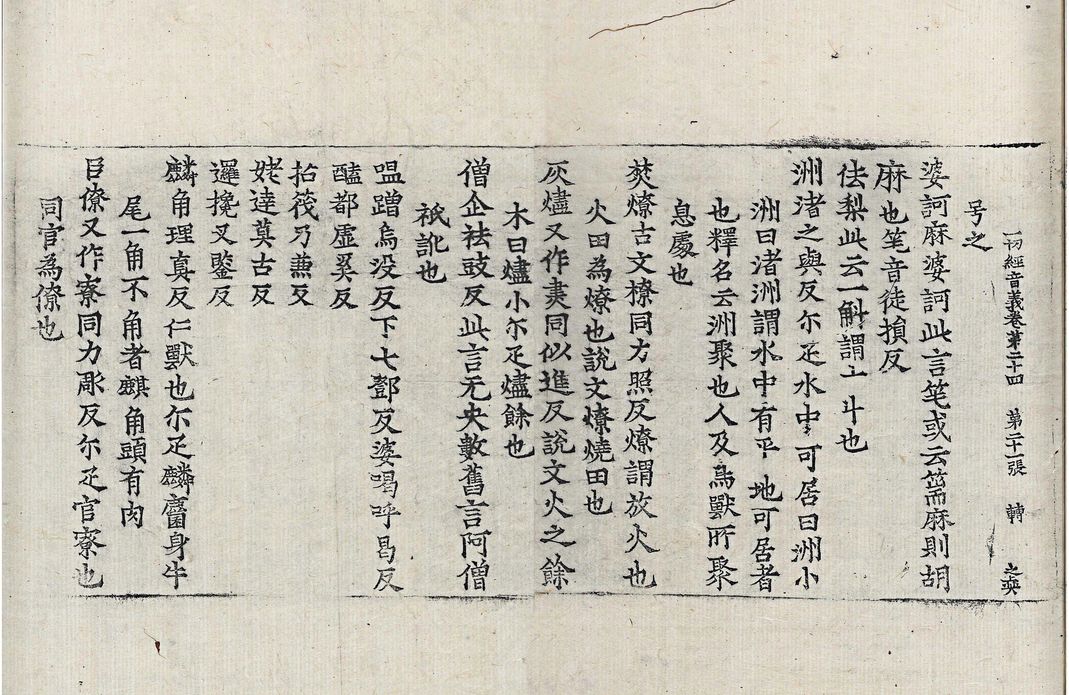 一切經音義卷第二十四 第二十一張 轉 之奭
号之
婆訶麻婆訶此言笔或云篅麻則胡
麻也笔音徒損反
佉梨此云一斛謂十斗也
洲渚之與反尔疋水中可居曰洲小
洲曰渚洲謂水中有平地可居者
也釋名云洲聚也人及鳥獸所聚
息處也
焚燎古文㮩同力照反燎謂放火也
火田為燎也說文燎燒田也
灰燼又作㶳同似進反說文火之餘
木曰燼小尔疋燼餘也
僧企祛豉反此言无央數舊言阿僧
祇訛也
嗢蹭烏没反下七鄧反婆喝呼曷反
醯都虛奚反
拈筏乃兼反
姥達莫古反
邏攙叉鑒反
麟角理真反仁獸也尔疋麟麕身牛
尾一角不角者麒角頭有肉
臣僚又作寮同力彫反尔疋官寮也
同官為僚也